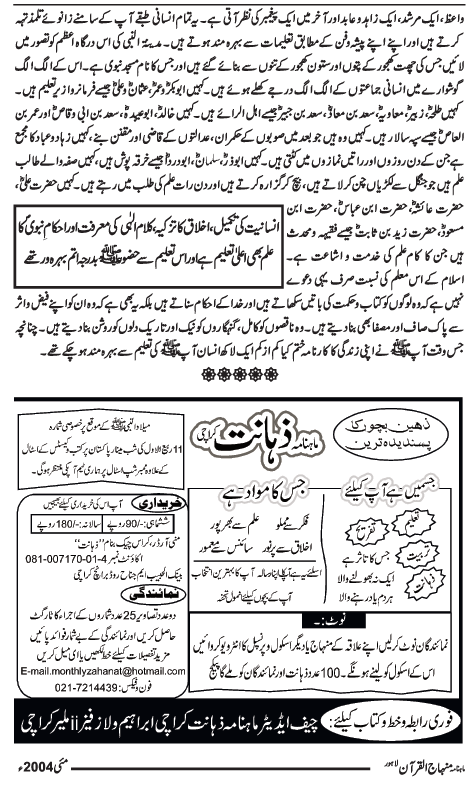 واعظ، ایک مرشد، ایک زاہد و عابد اور آخر میں ایک پیغمبر کی نظر آتی ہے۔ یہ تمام انسانی طبقے آپ کے سامنے زانوئے تلمذ تہہ
کرتے ہیں اور اپنے اپنے پیشہ و فن کے مطابق تعلیمات سے بہرہ مند ہوتے ہیں۔ مدینۃ النبی کی اس درگاہ اعظم کو تصور میں
لائیں جس کی چھت کھجور کے پتوں اور ستون کھجور کے تنوں سے بنائے گئے ہیں اور جس کا نام مسجد نبوی ہے۔ اس کے الگ الگ
گوشوارے میں انسانی جماعتوں کے الگ الگ درجے کھلے ہوئے ہیں۔ کہیں ابوبکرؓ عمرؓ عثمانؓ و علیؓ جیسے فرمانروا زیر تعلیم ہیں۔
کہیں طلحہؓ، زبیرؓ، معاویہؓ، سعد بن معاذؓ، سعد بن جبیرؓ جیسے اہل الرائے ہیں۔ کہیں خالدؓ، ابوعبیدہؓ، سعد بن ابی وقاصؓ اور عمر بن
العاصؓ جیسے سپہ سالار ہیں۔ کہیں وہ ہیں جو بعد میں صوبوں کے حکمران، عدالتوں کے قاضی اور مقنن بنے، کہیں زہاد و عباد کا مجمع
ہے جن کے دن روزوں اور راتیں نمازوں میں کٹتی ہیں۔ کہیں ابوذرؓ، سلمانؓ، ابو درداؓ جیسے خرقہ پوش ہیں، کہیں صفہ والے طالب
علم ہیں جو جنگل سے لکڑیاں چن کر لاتے ہیں، بیچ کر گزارہ کرتے ہیں اور دن رات علم کی طلب میں رہتے ہیں۔ کہیں حضرت علیؓ،
حضرت عائشہؓ، حضرت ابن عباسؓ، حضرت ابن
مسعودؓ، حضرت زید بن ثابتؓ جیسے فقیہہ و محدث
ہیں جن کا کام علم کی خدمت و اشاعت ہے۔
اسلام کے اس معلم کی نسبت صرف یہی دعوے
انسانیت کی تکمیل، اخلاق کا تزکیہ، کلام الٰہی کی معرفت اور احکام نبوی کا
علم بھی اعلیٰ تعلیم ہے اور اس تعلیم سے حضور ﷺ بدرجہ اتم بہرہ ور تھے
نہیں ہے کہ وہ لوگوں کو کتاب و حکمت کی باتیں سکھاتے ہیں اور خدا کے احکام سناتے ہیں بلکہ یہ بھی ہے کہ وہ ان کو اپنے فیض و اثر
سے پاک صاف اور مصفا بھی بنا دیتے ہیں۔ وہ ناقصوں کو کامل، گنہگاروں کو نیک اور تاریک دلوں کو روشن بنا دیتے ہیں۔ چنانچہ
جس وقت آپ ﷺ نے اپنی زندگی کا کارنامہ ختم کیا کم از کم ایک لاکھ انسان آپ ﷺ کی تعلیم سے بہرہ مند ہو چکے تھے۔
ذہین بچوں کا
پسندیدہ ترین
ماہنامہ ذہانت کراچی
میلاد النبی ﷺ کے موقع پر خصوصی شمارہ
11 ربیع الاول کی شب مینار پاکستان پر کتب و کیسٹس کے اسٹال
کے علاوہ ممبر شپ اسٹال پر ہماری ٹیم آپکی منتظر ہوگی۔
جسمیں ہے آپ کیلئے
تعلیم
تفریح
تربیت
ذہانت
جس کا تاثر ہے
ایک نہ بھولنے والا
ہر دم یاد رہنے والا
جس کا مواد ہے
فکر سے مملو
علم سے بھرپور
اخلاق سے پرنور
سائنس سے معمور
اسلئے یہ ہے آپکا اپنا رسالہ۔ آپ کا بہترین انتخاب
آپ کے بچوں کیلئے انمول تحفہ
خریداری
آپ اس کی خریداری کیلئے بھیجیں
ششماہی:-/90 روپے
سالانہ:-/180 روپے
منی آرڈر، کراس چیک بنام "ذہانت"
اکاؤنٹ نمبر 4-01-007170-081
بینک الحبیب ایم جناح روڈ برانچ کراچی
نمائندگی
دو عدد تصاویر 25 عدد شماروں کے اجراء کا ٹارگٹ
حاصل کریں اور نمائندگی کے بے شمار فوائد پائیں
مزید تفصیلات کیلئے خط لکھیں یا ای میل کریں
E-mail.monthlyzahanat@hotmail.com
فون و فیکس: 021-7214439
نوٹ:۔
نمائندگان نوٹ کر لیں اپنے علاقہ کے منہاج یا دیگر اسکول و پرنسپل کا انٹرویو کروائیں
اس کے اسکول کو لینے ہونگے۔ 100 عدد ذہانت اور نمائندگان کو ملے گا پیکج
فوری رابطہ و خط و کتاب کیلئے:
چیف ایڈیٹر ماہنامہ ذہانت کراچی ابراہیم ولاز فیز ii ملیر کراچی
ماہنامہ منہاج القرآن لاہور
مئی 2004ء